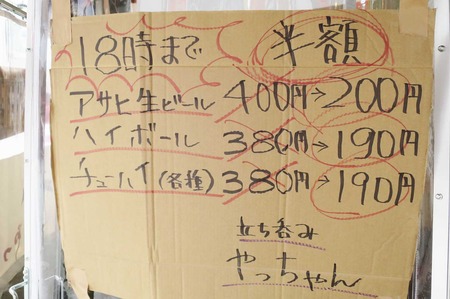 18時まで 半額
アサヒ生ビール 400円→200円
ハイボール 380円→190円
チューハイ(各種) 380円→190円
立ち呑み
やっちゃん